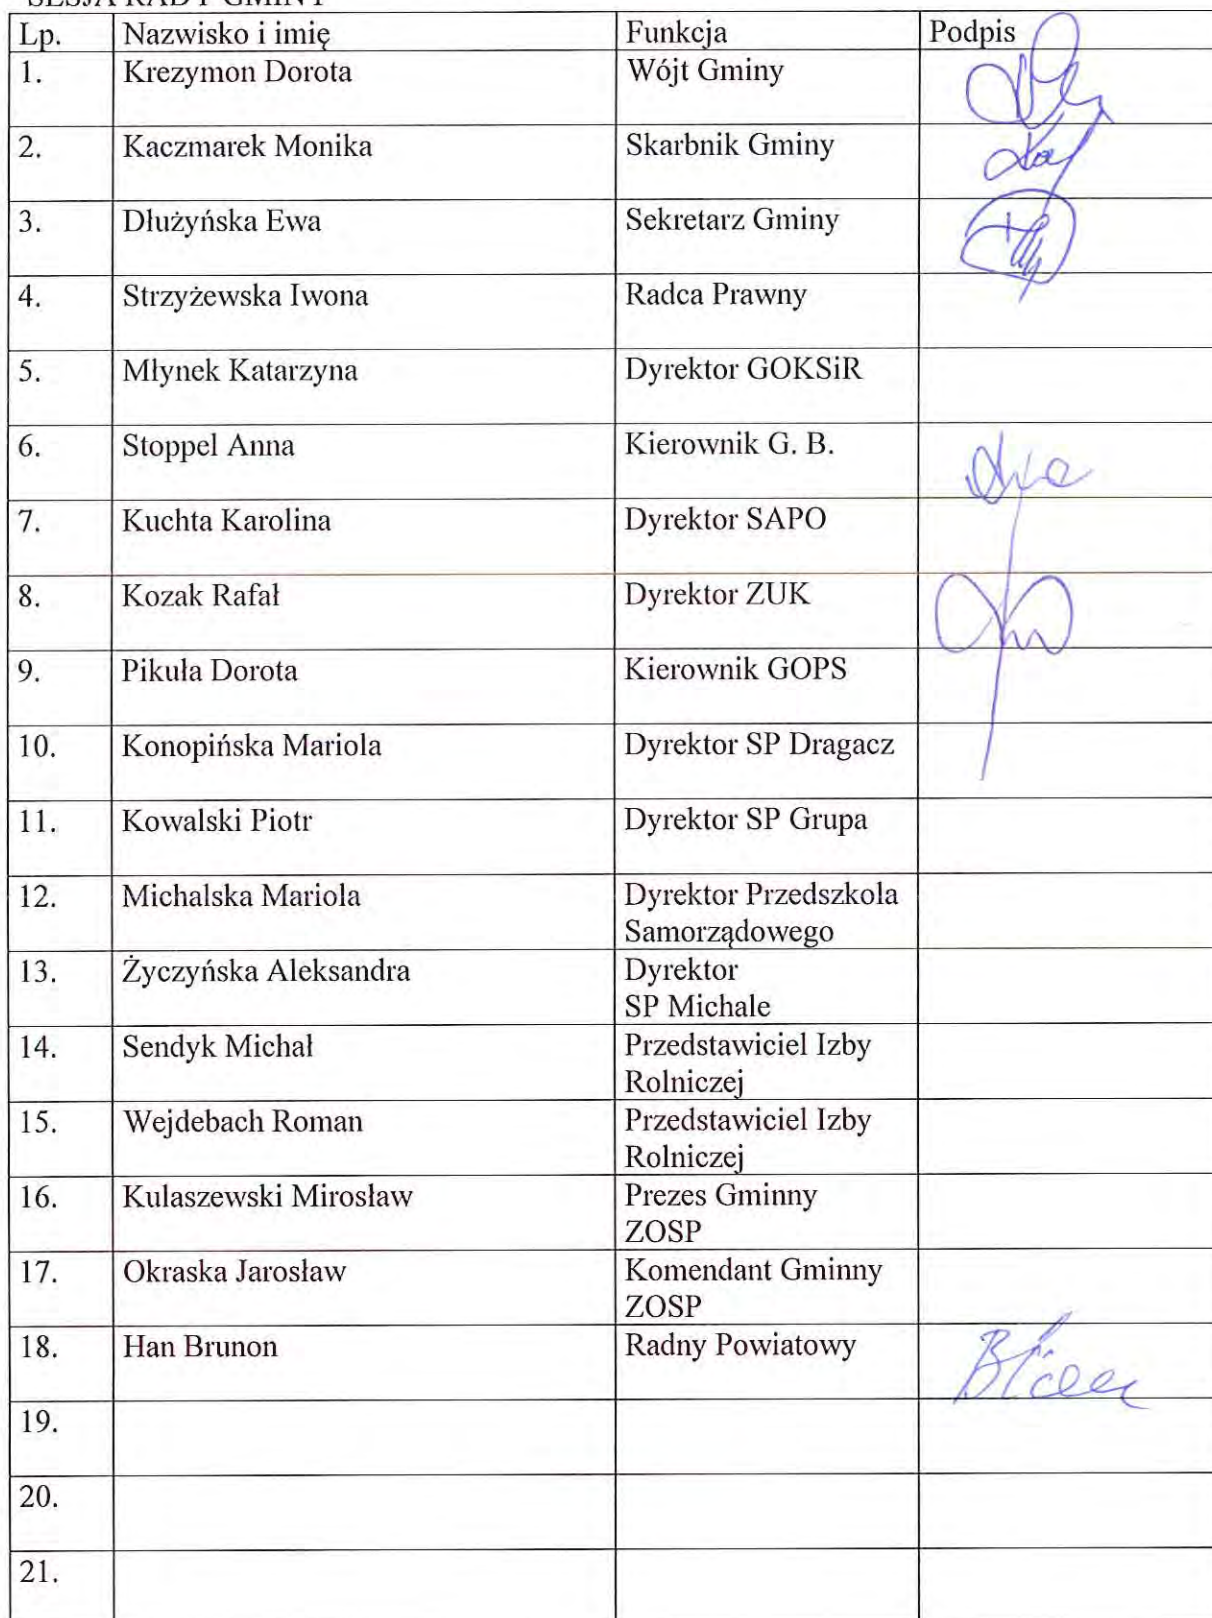 SESJA RADY GMINY
Lp. Nazwisko i imię Funkcja Podpis
1. Krezymon Dorota Wójt Gminy
2. Kaczmarek Monika Skarbnik Gminy
3. Dłużyńska Ewa Sekretarz Gminy
4. Strzyżewska Iwona Radca Prawny
5. Młynek Katarzyna Dyrektor GOKSiR
6. Stoppel Anna Kierownik G. B.
7. Kuchta Karolina Dyrektor SAPO
8. Kozak Rafał Dyrektor ZUK
9. Pikuła Dorota Kierownik GOPS
10. Konopińska Mariola Dyrektor SP Dragacz
11. Kowalski Piotr Dyrektor SP Grupa
12. Michalska Mariola Dyrektor Przedszkola
Samorządowego
13. Życzyńska Aleksandra Dyrektor
SP Michale
14. Sendyk Michał Przedstawiciel Izby
Rolniczej
15. Wejdebach Roman Przedstawiciel Izby
Rolniczej
16. Kulaszewski Mirosław Prezes Gminny
ZOSP
17. Okraska Jarosław Komendant Gminny
ZOSP
18. Han Brunon Radny Powiatowy
19.
20.
21.